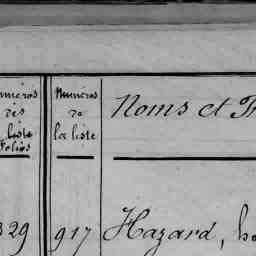 Numéros
des
liste
Folios
Numéros
de
la liste
Noms et
329
917
Hazard,